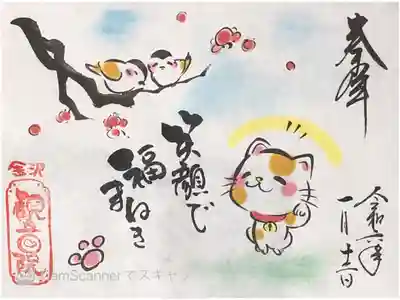 奉拝
令和二年
一月十二日
笑顔で
福まねき
金沢
観音院
CamScannerでスキャン